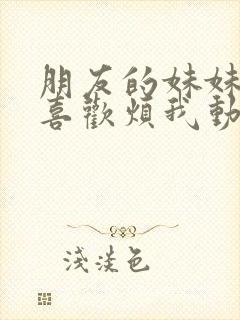 朋友的妹妹
喜歡煩我動
淺淡色